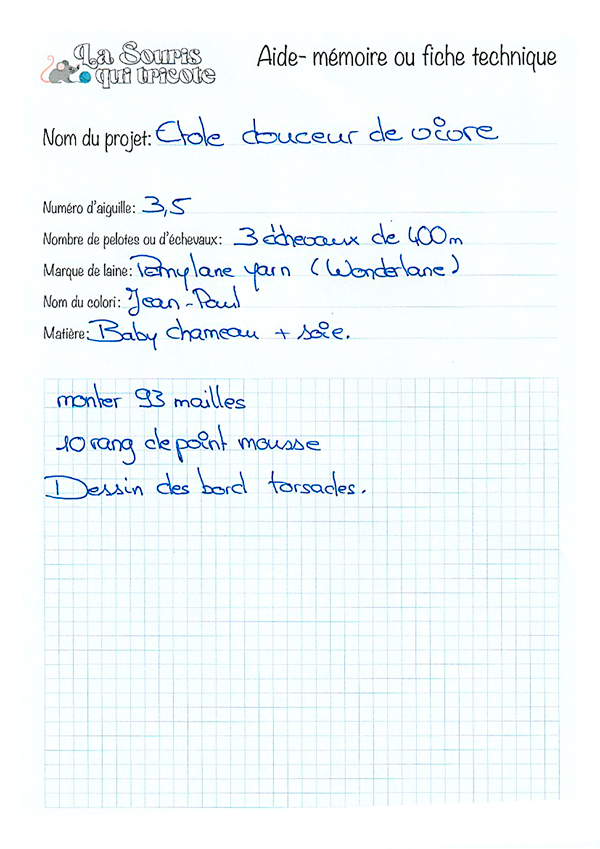 La Souris
qui tricote
Aide- mémoire ou fiche technique
Nom du projet: Etole douceur de vivre
Numéro d'aiguille: 3,5
Nombre de pelotes ou d'échevaux: 3 échevaux de 400m
Marque de laine: yarn (Wonderlane)
Nom du colori: Jean-Paul
Matière: Baby chameau + soie.
monter 93 mailles
10 rang de point mousse
Dessin des bord torsades.